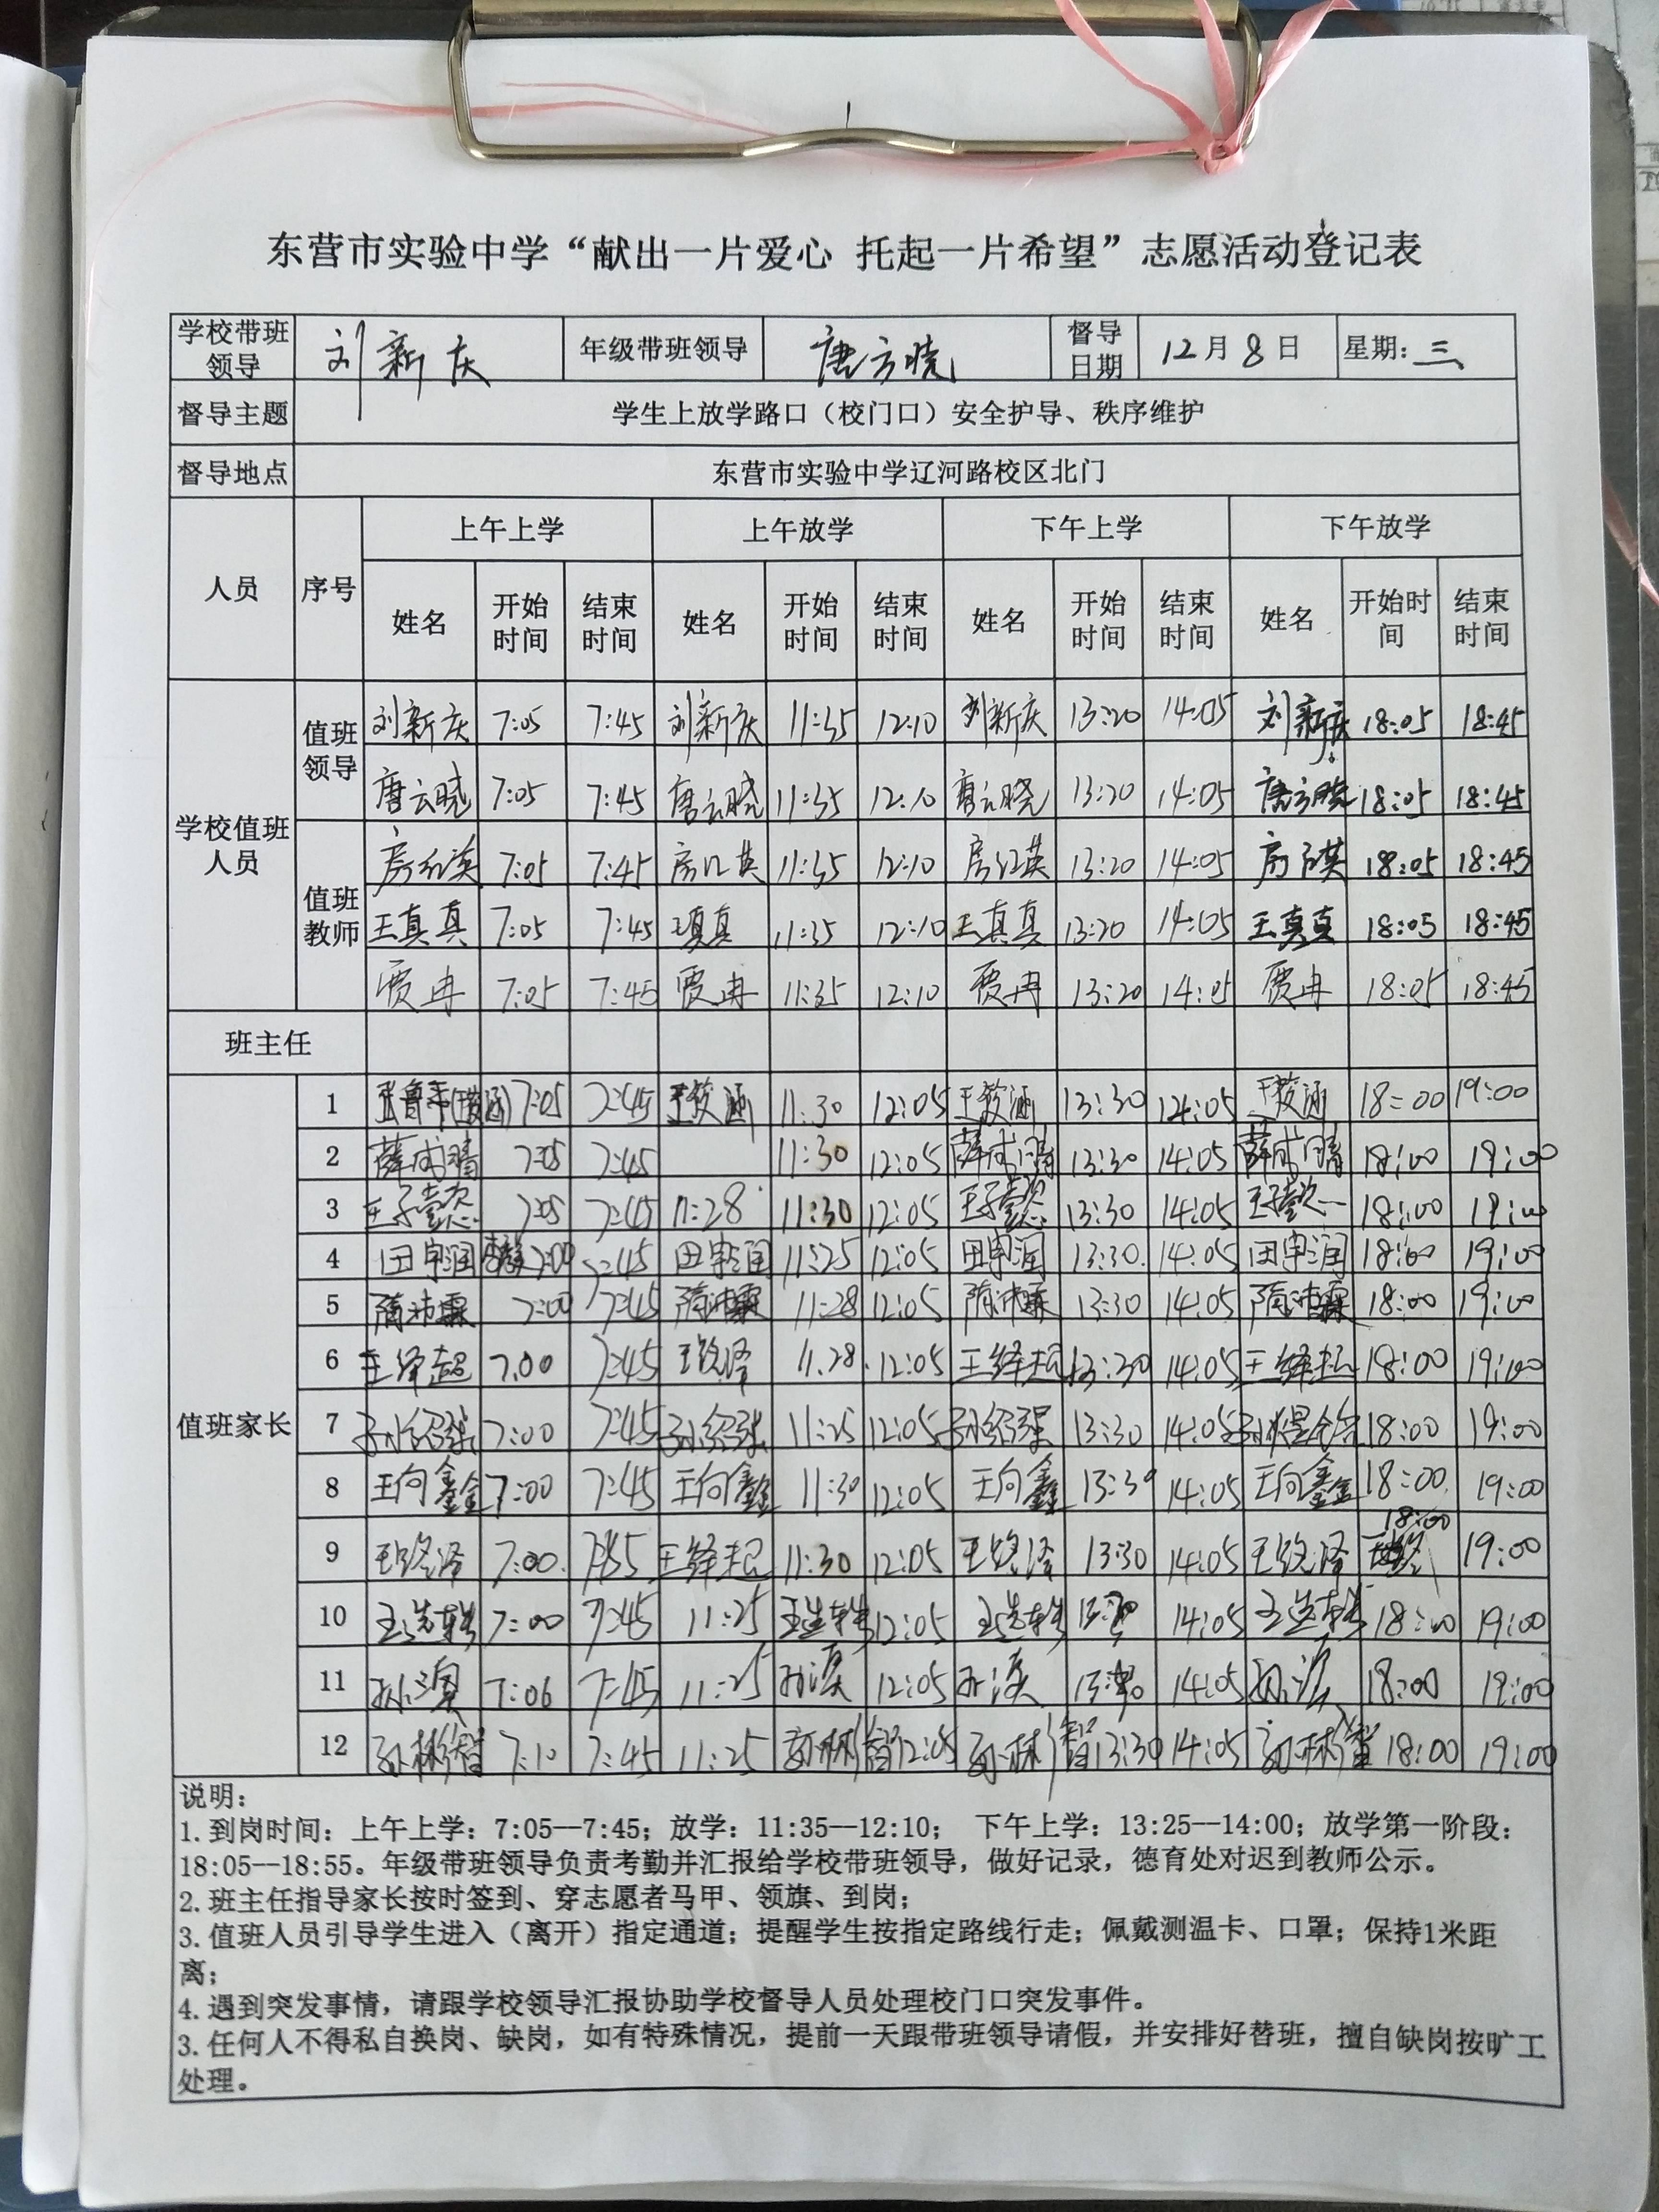 东营市实验中学“献出一片爱心 托起一片希望”志愿活动登记表
学校带班领导 刘新庆 年级带班领导 唐云晓 督导日期 12月8日 星期:三
督导主题 学生上放学路口（校门口）安全护导、秩序维护
督导地点 东营市实验中学辽河路校区北门
人员 序号 上午上学 上午放学 下午上学 下午放学
姓名 开始时间 结束时间 姓名 开始时间 结束时间 姓名 开始时间 结束时间 姓名 开始时间 结束时间
学校值班人员
值班领导
刘新庆 7:05 7:45 刘新庆 11:35 12:10 刘新庆 13:20 14:05 刘新庆 18:05 18:45
唐云晓 7:05 7:45 唐云晓 11:35 12:10 唐云晓 13:20 14:05 唐云晓 18:05 18:45
值班教师
房红英 7:05 7:45 房红英 11:35 12:10 房红英 13:20 14:05 房红英 18:05 18:45
王真真 7:05 7:45 王真真 11:35 12:10 王真真 13:20 14:05 王真真 18:05 18:45
贾冉 7:05 7:45 贾冉 11:35 12:10 贾冉 13:20 14:05 贾冉 18:05 18:45
班主任
值班家长
1 7:05 7:45 11:30 12:05 13:30 14:05 18:00 19:00
2 7:05 7:45 11:30 12:05 13:30 14:05 18:00 19:00
3 7:05 7:45 11:28 11:30 12:05 13:30 14:05 18:00 19:00
4 7:00 7:45 11:25 12:05 13:30 14:05 18:00 19:00
5 隋沛霖 7:00 7:45 隋沛霖 11:28 12:05 隋沛霖 13:30 14:05 隋沛霖 18:00 19:00
6 王绎起 7:00 7:45 11.28 12:05 王绎起 13:30 14:05 王绎起 18:00 19:00
7 7:00 7:45 11:25 12:05 13:30 14:05 18:00 19:00
8 王向鑫 7:00 7:45 王向鑫 11:30 12:05 王向鑫 13:30 14:05 王向鑫 18:00 19:00
9 7:00 王绎起 11:30 12:05 13:30 14:05 18:00 19:00
10 7:00 7:45 11:25 12:05 14:05 18:00 19:00
11 7:06 7:45 11:25 12:05 14:05 18:00 19:00
12 7:10 7:45 11:25 12:05 13:30 14:05 18:00 19:00
说明：
1.到岗时间：上午上学：7:05--7:45；放学：11:35--12:10； 下午上学：13:25--14:00；放学第一阶段：
18:05--18:55。年级带班领导负责考勤并汇报给学校带班领导，做好记录，德育处对迟到教师公示。
2.班主任指导家长按时签到、穿志愿者马甲、领旗、到岗；
3.值班人员引导学生进入（离开）指定通道；提醒学生按指定路线行走；佩戴测温卡、口罩；保持1米距
离；
4.遇到突发事情，请跟学校领导汇报协助学校督导人员处理校门口突发事件。
3.任何人不得私自换岗、缺岗，如有特殊情况，提前一天跟带班领导请假，并安排好替班，擅自缺岗按旷工
处理。